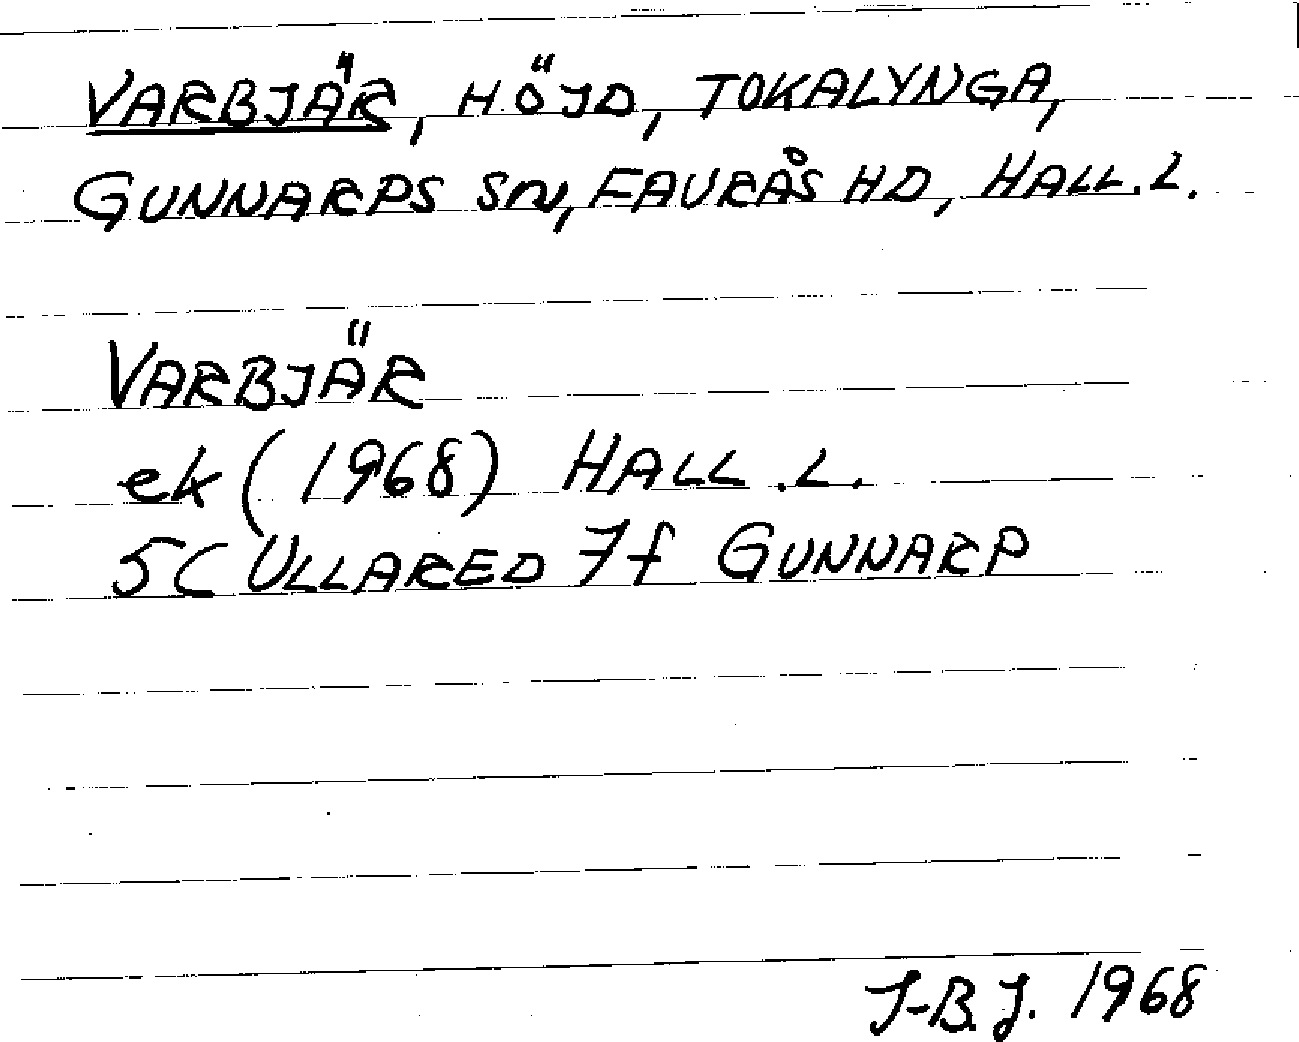 VARBJÄR, HÖJD, TOKALYNGA,
GUNNARPS SN, FAURÅS HD, HALL.L.
VARBJÄR
ek (1968) HALL.L.
5C ULLARED 7f GUNNARP
J-B.J. 1968